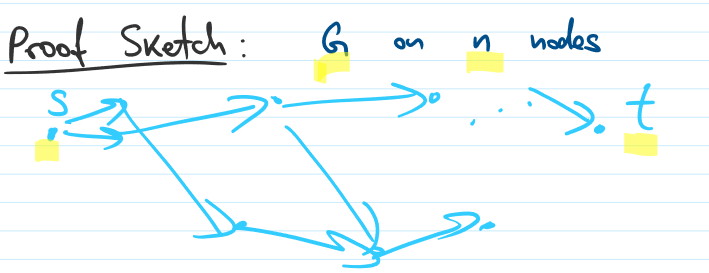 Proof Sketch: G on n nodes
s t